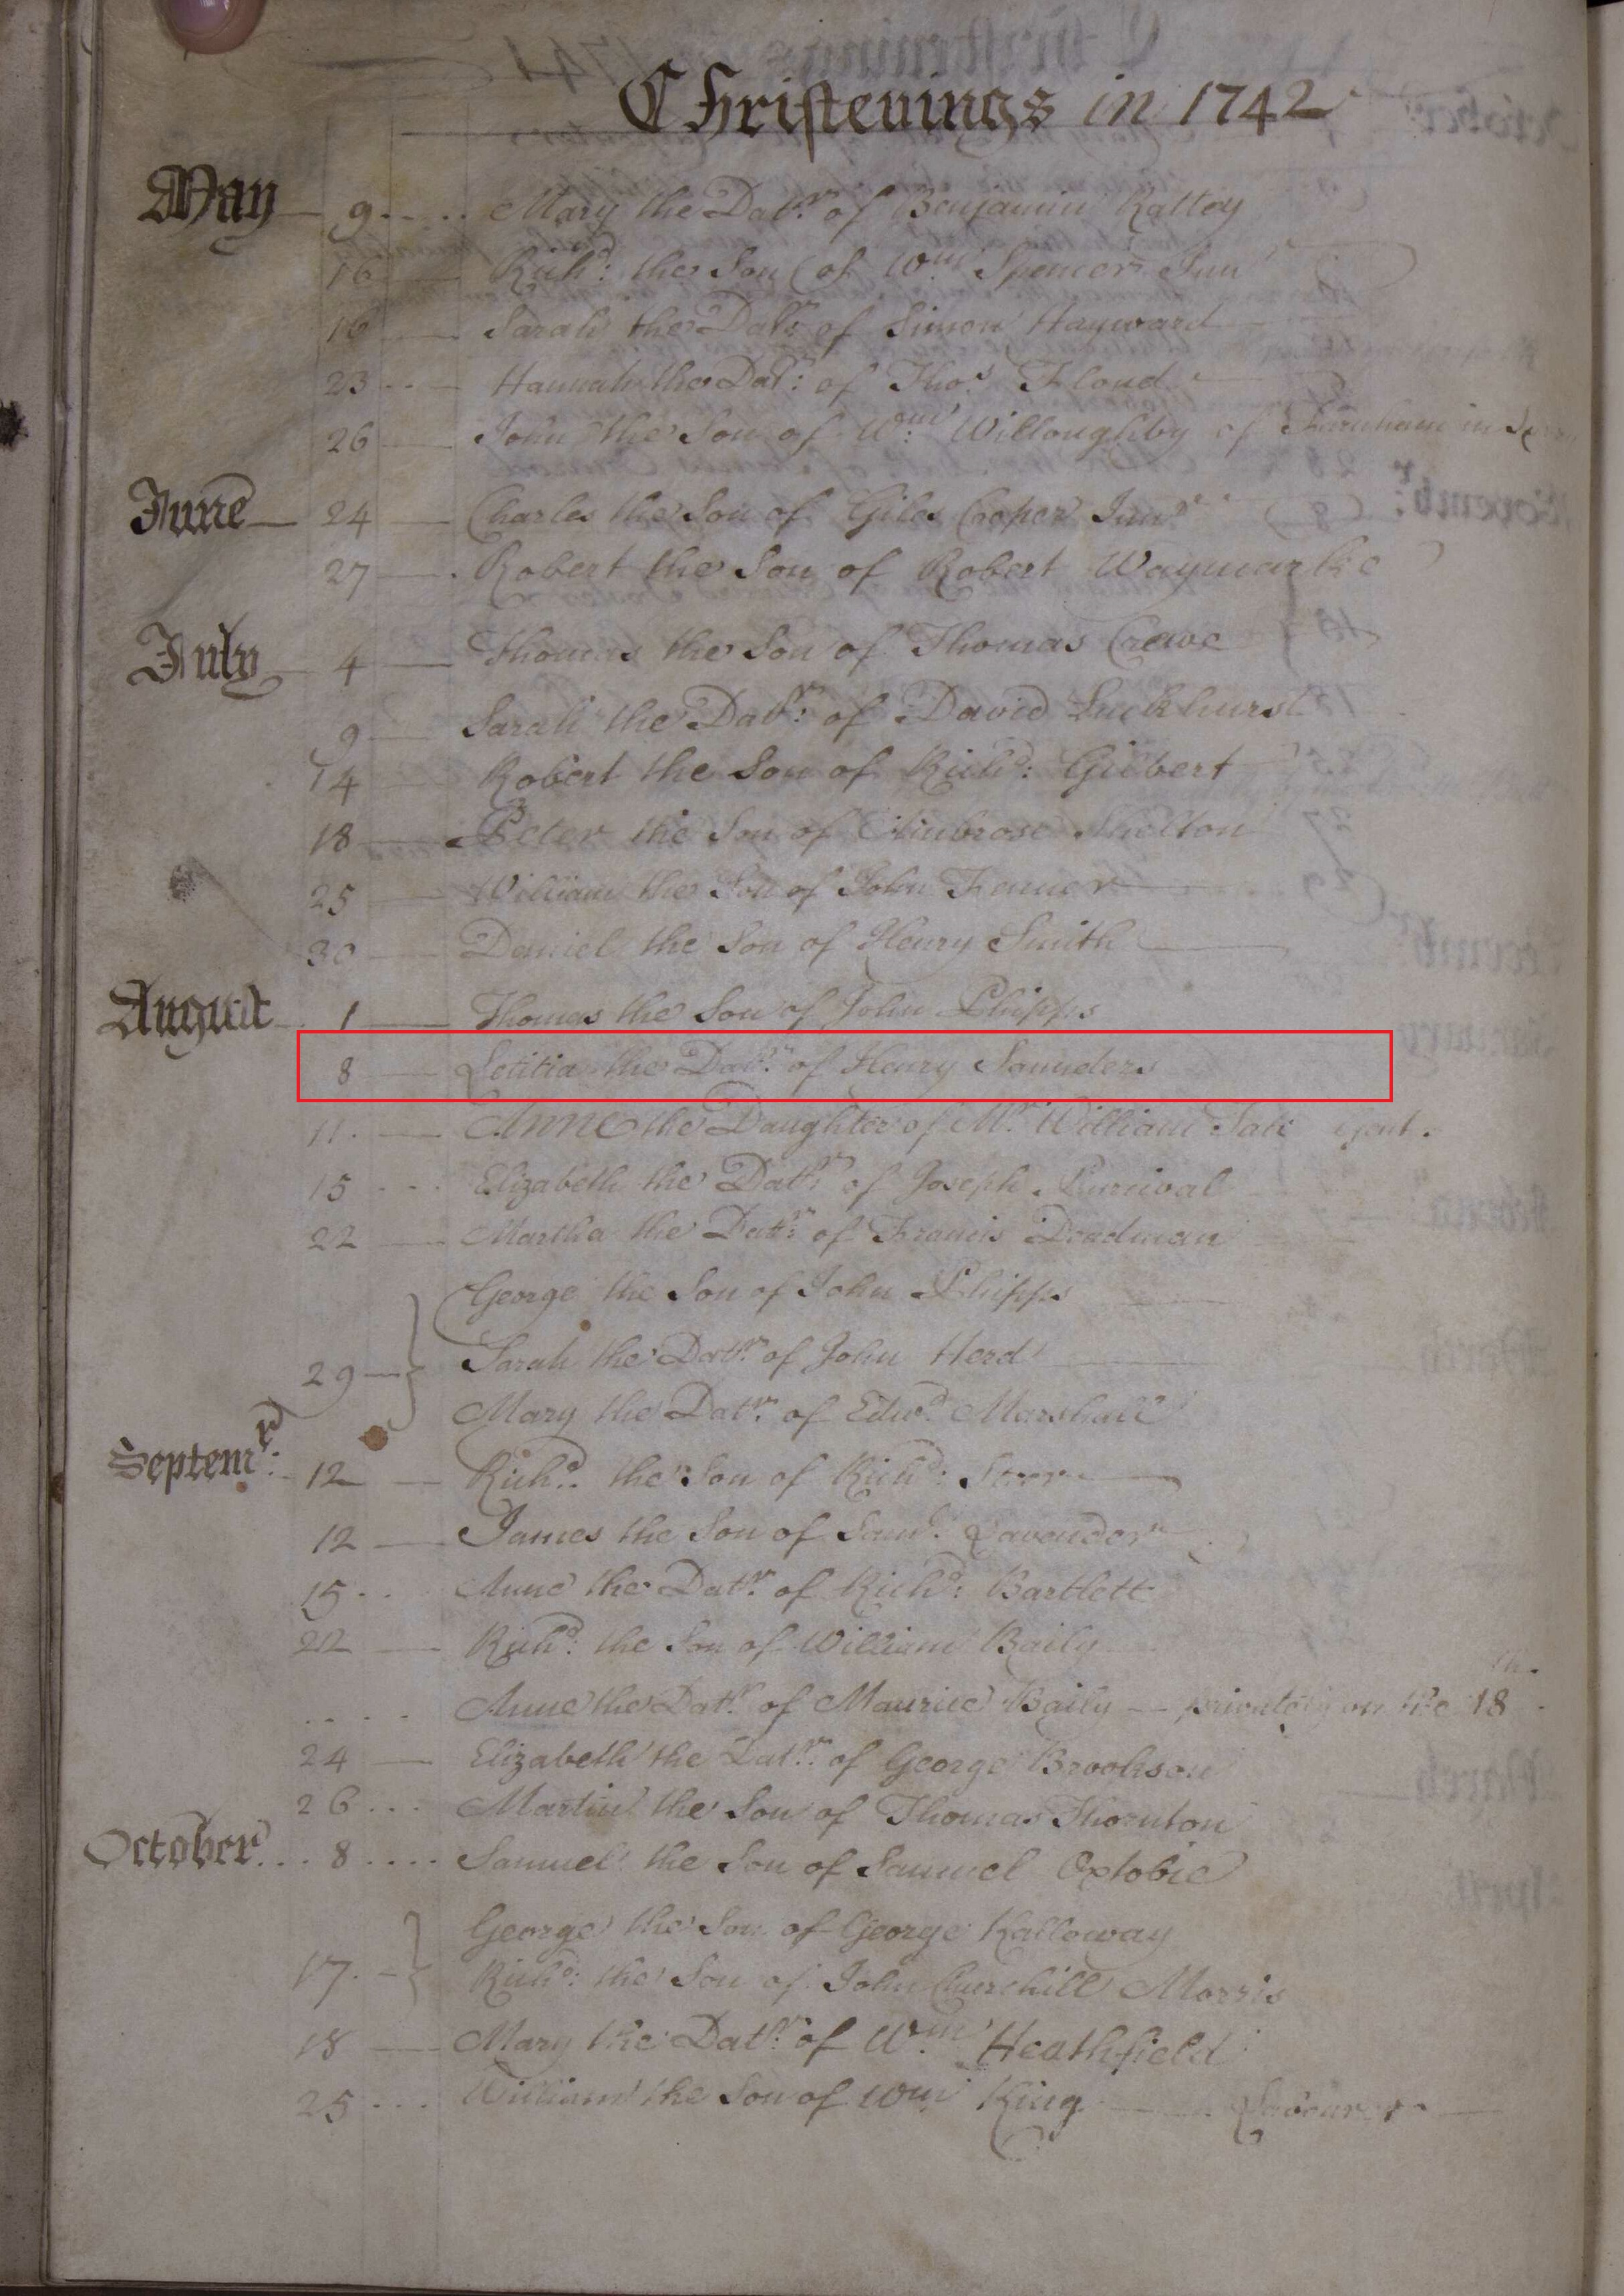 Christenings in 1742
May 9 Mary the Datr. of Benjamin
16 Richd: the Son of Wm Spencer Junr
16 Sarah the Datr: of Simon Hayward
23 Hannah the Datr: of Thos Floud
26 John the Son of Wm: Willoughby of in
June 24 Charles the Son of Giles Cooper Junr
27 Robert the Son of Robert Waymarke
July 4 Thomas the Son of Thomas Crewe
9 Sarah the Datr: of David Luckhurst
14 Robert the Son of Richd: Gilbert
18 Peter the Son of Ambrose Shelton
25 William the Son of John
30 Daniel the Son of Henry Smith
August 1 Thomas the Son of John Phipps
8 Letitia the Datr: of Henry Saunders
11 Anne the Daughter of Mr. William gent.
15 Elizabeth the Datr: of Joseph Purcival
22 Martha the Datr: of Francis Deadman
George the Son of John Phipps
29 Sarah the Datr. of John Herd
Mary the Datr. of Edwd. Marshall
Septemr: 12 Richd. the Son of Richd:
12 James the Son of Saml: Lavender
15 Anne the Datr. of Richd: Bartlett
Richd: the Son of William Baily
Anne the Datr. of Maurice Baily privately on the 18th.
24 Elizabeth the Datr. of George Brookson
26 Martin the Son of Thomas Thornton
October 8 Samuel the Son of Samuel Oxtobie
George the Son of George Kalloway
17 Richd: the Son of John Churchill Morris
18 Mary the Datr. of Wm: Heathfield
25 William the Son of Wm King Labourer